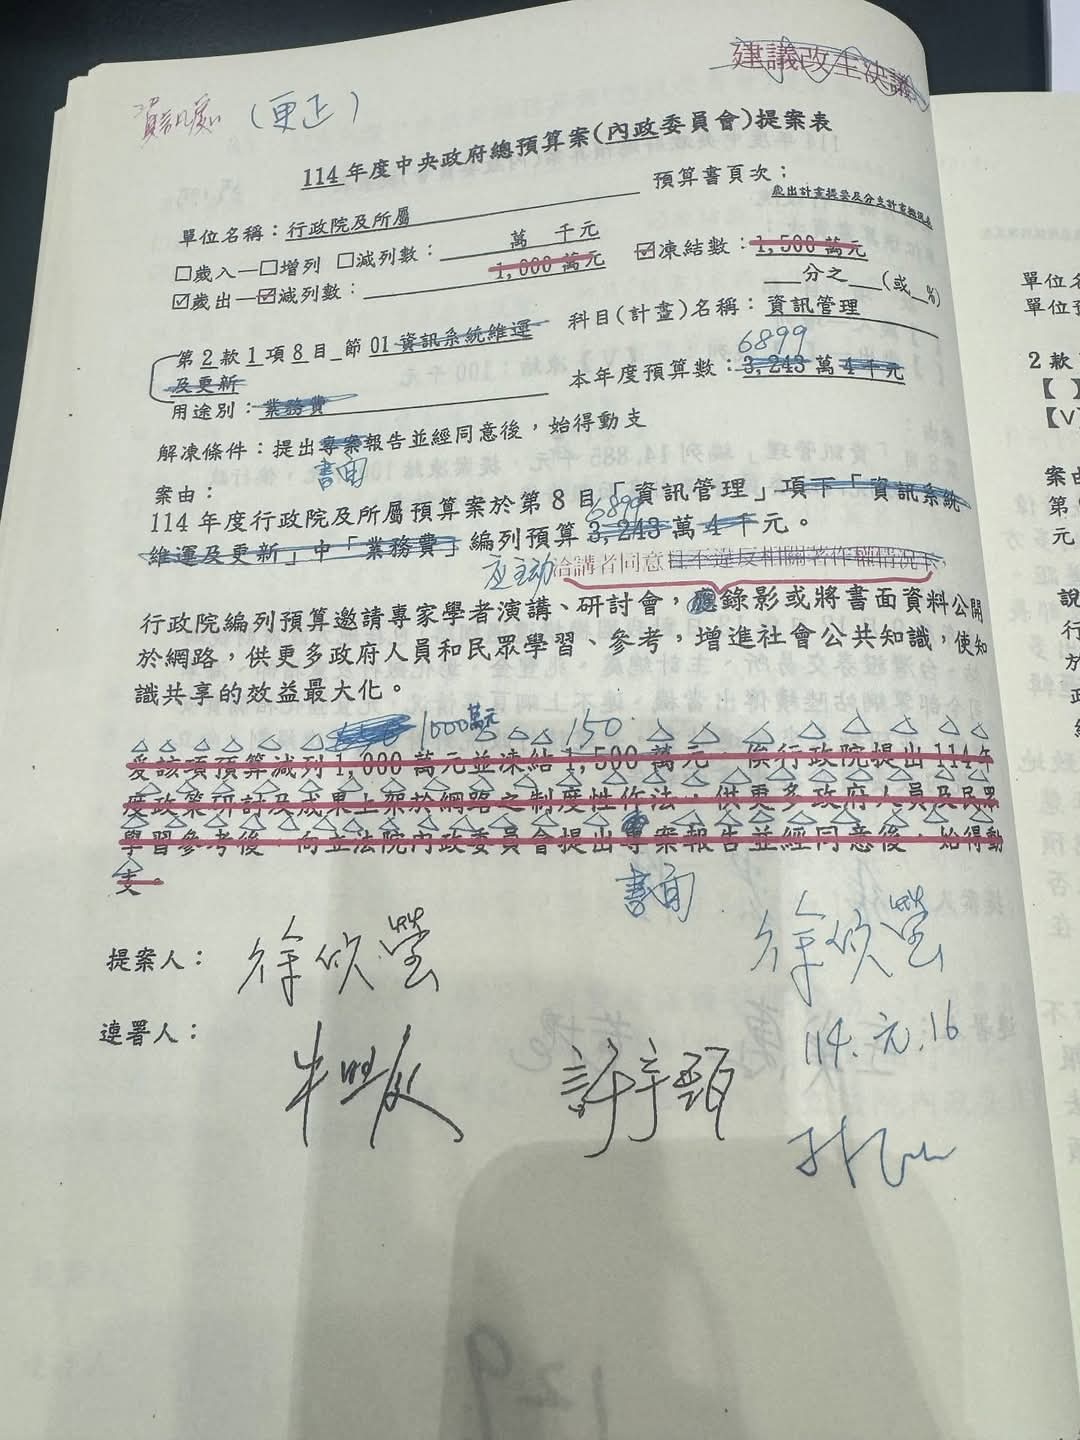 建議改主決議
資訊處 (更正)
114年度中央政府總預算案(內政委員會)提案表
預算書頁次：
歲出計畫提要及分支計畫概況表
單位名稱：行政院及所屬
□歲入—□增列 □減列數：＿萬＿千元
☑歲出—☑減列數：1,000萬元
☑凍結數：1,500萬元
＿分之＿(或＿%)
第2款1項8目_節01資訊系統維運及更新
科目(計畫)名稱：資訊管理
6899
本年度預算數：3,243萬4千元
用途別：業務費
解凍條件：提出專案報告並經同意後，始得動支
書面
案由：
114年度行政院及所屬預算案於第8目「資訊管理」項下「資訊系統
6899
維運及更新」中「業務費」編列預算3,243萬4千元。
應主動洽講者同意且不違反相關著作權情況下，
行政院編列預算邀請專家學者演講、研討會，應錄影或將書面資料公開
於網路，供更多政府人員和民眾學習、參考，增進社會公共知識，使知
識共享的效益最大化。
1000萬元 150
爰該項預算減列1,000萬元並凍結1,500萬元，俟行政院提出114年
度政策研討及成果上架於網路之制度性作法，供更多政府人員及民眾
學習參考後，向立法院內政委員會提出專案報告並經同意後，始得動
支。
書面
提案人：徐欣瑩 徐欣瑩
114.元.16
連署人：牛煦庭 許宇甄
單位名
單位預
2款
【 】
【V】
案由
第
元